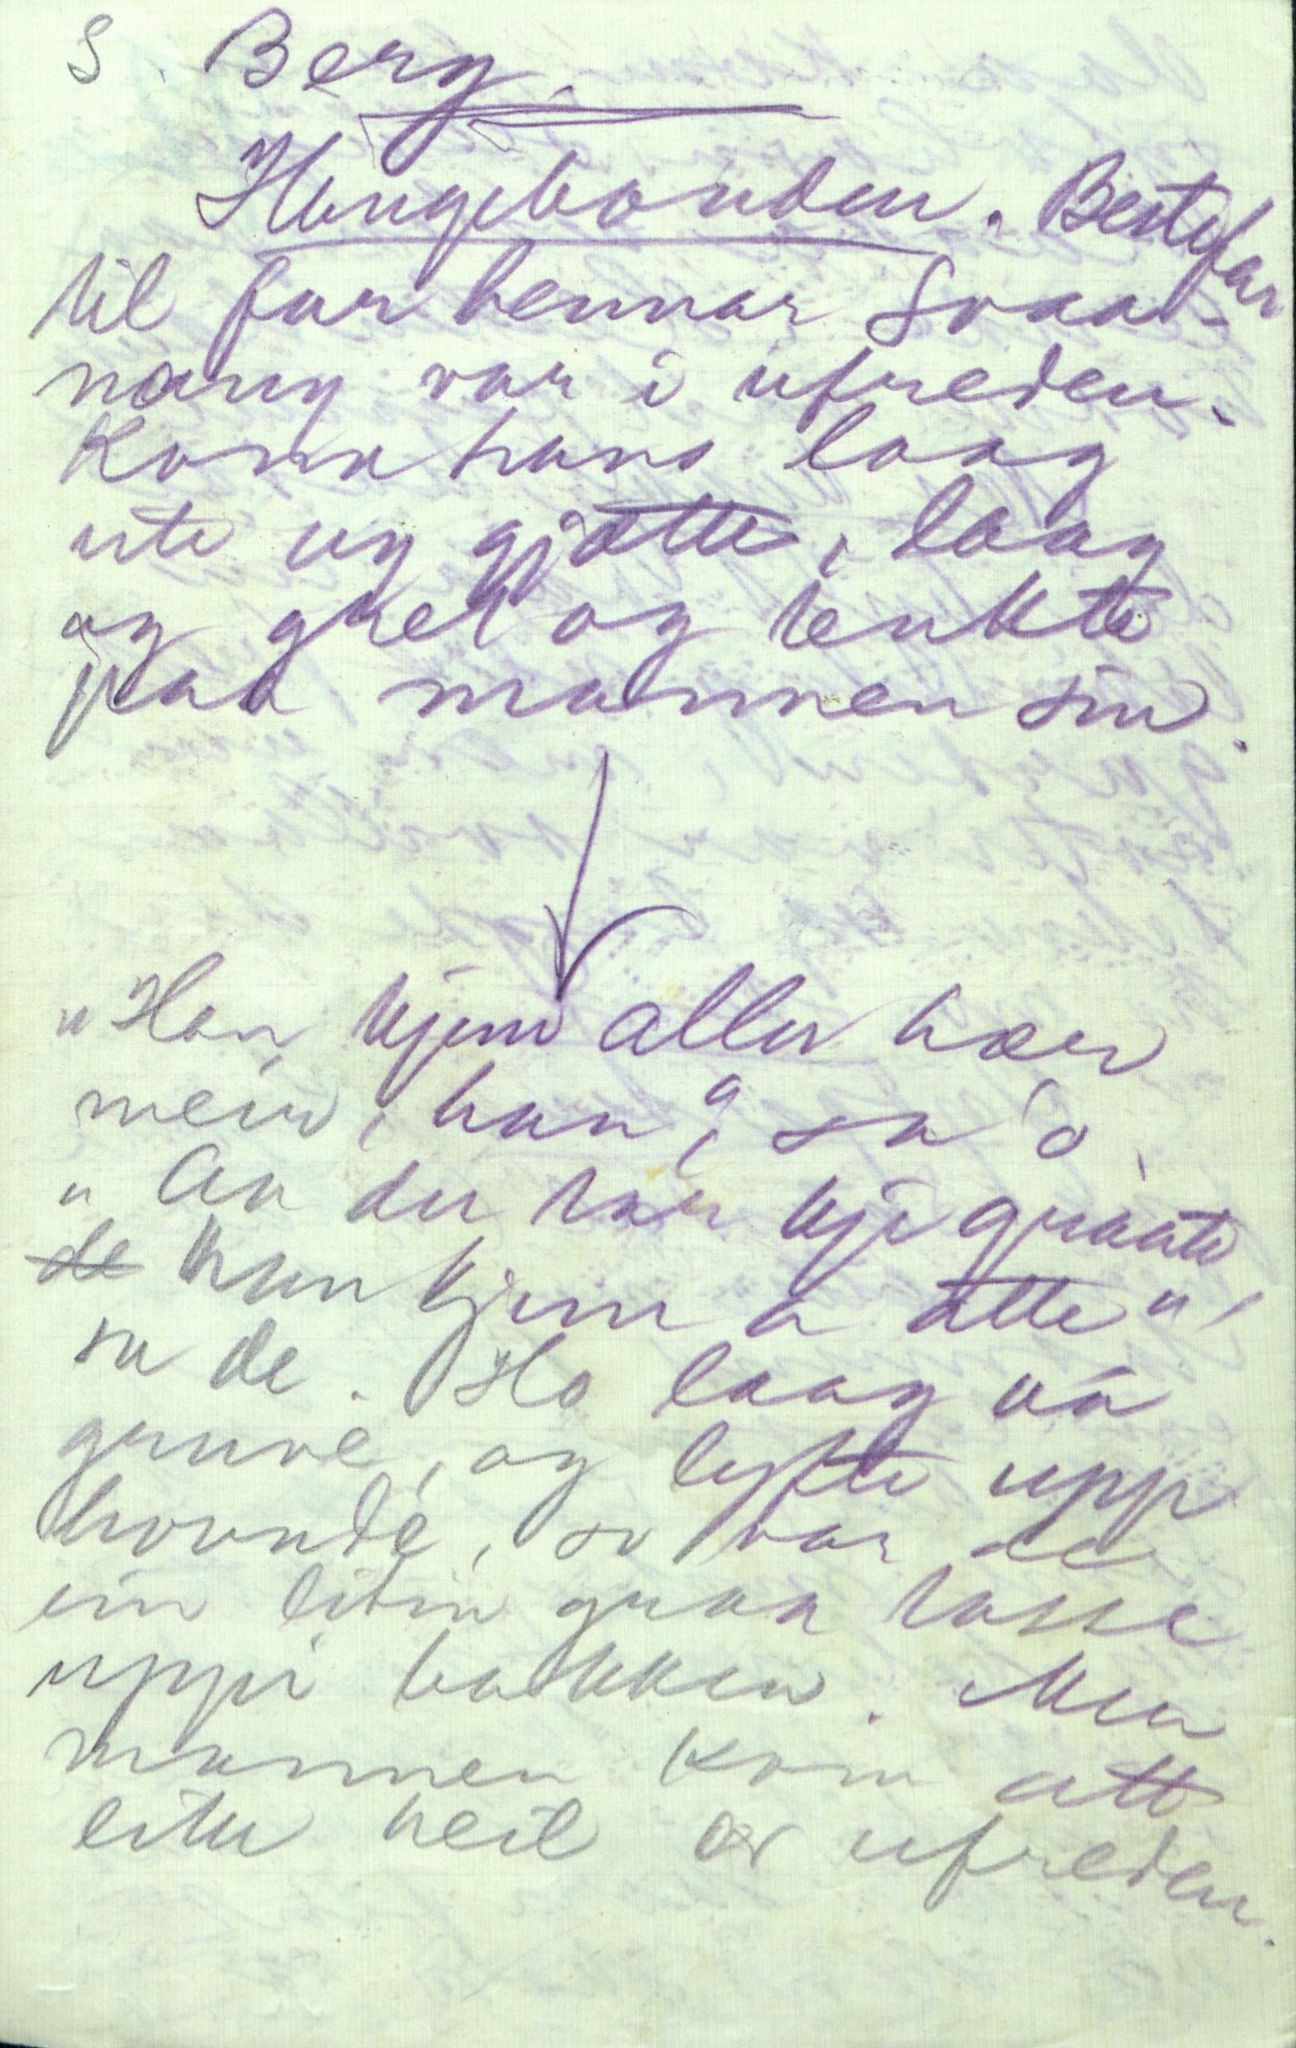 S. Berg.
Haugebonden. Bestefar
til far hennar Svaa-
naug var i ufreden.
Kona hans laag
ute og gjætte, laag
og gret og tenkte
paa mannen sin.
"Han kjem aller hær
meir, han", sa o.
"Aa du tar kje graate
de han kjem a atte",
sa de. Ho laag aa
gruve, og lyfte upp
hovude, so var de
ein liten graa tasse
uppi bakken. Men
mannen kom att
like heil or ufreden.